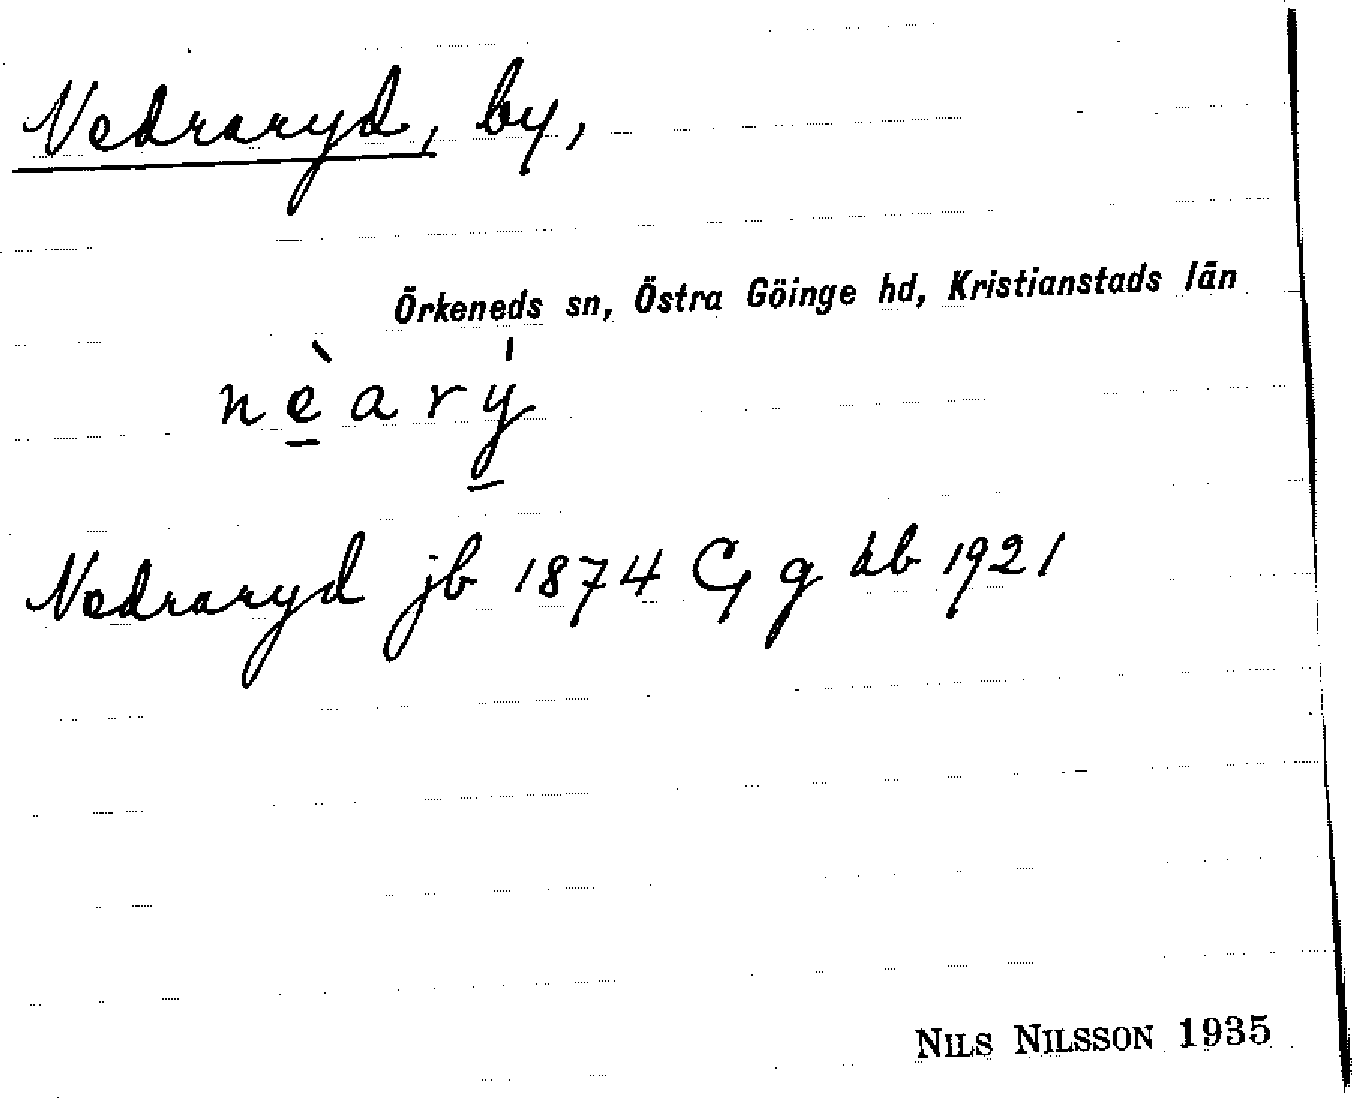 Nedraryd, by,
Örkeneds sn, Östra Göinge hd, Kristianstads län
nèarý
Nedraryd jb 1874 Gg hb 1921
NILS NILSSON 1935